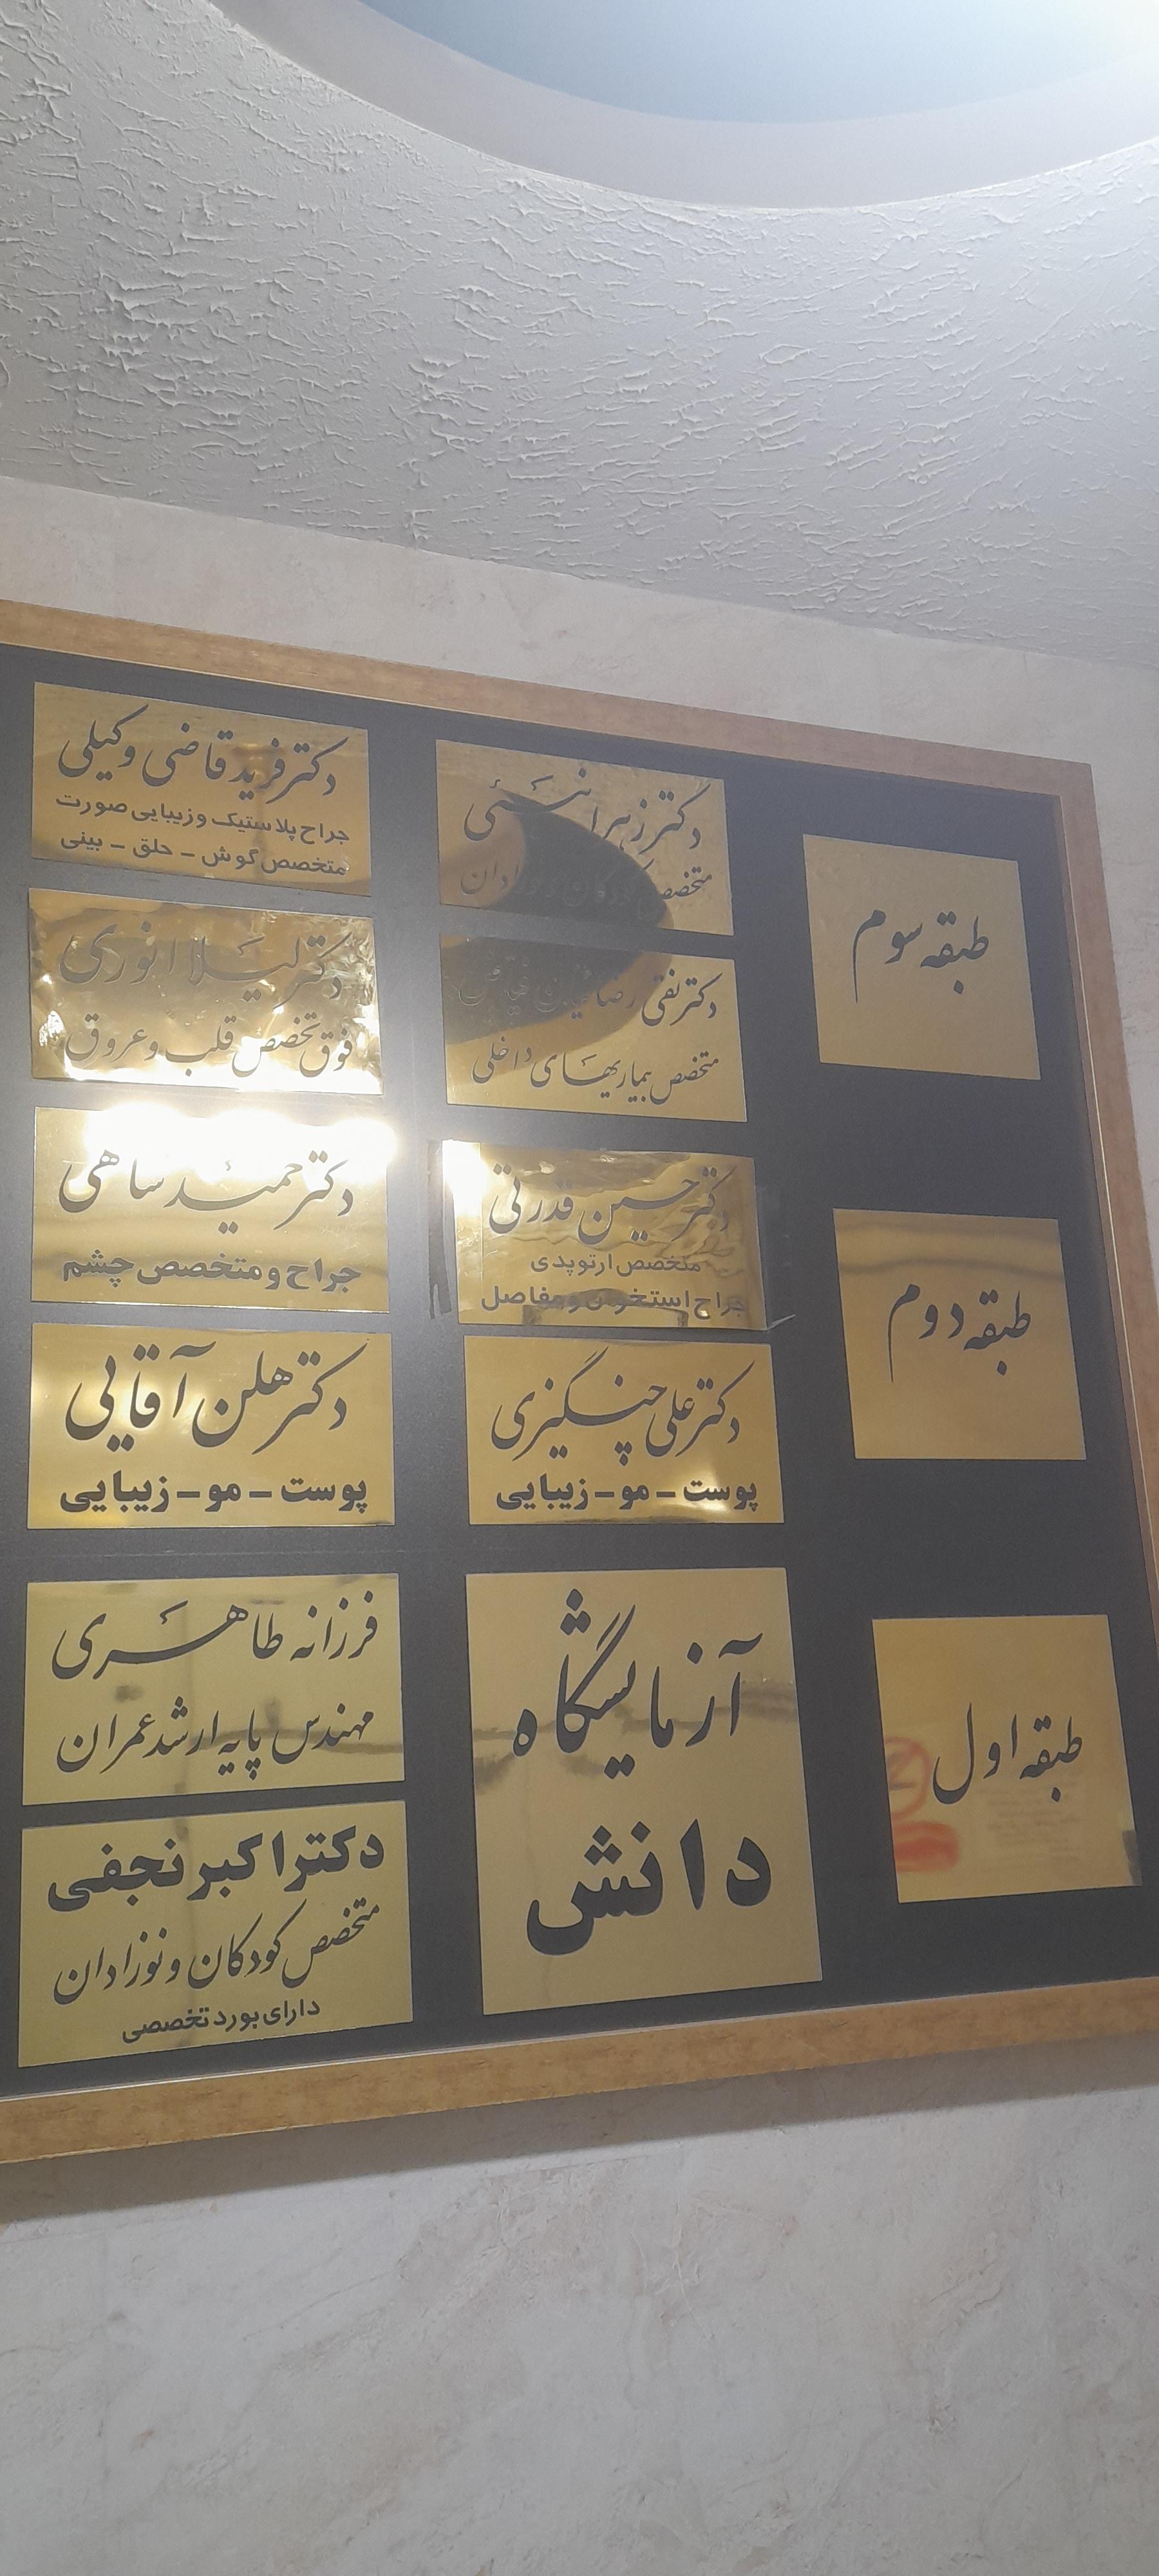 طبقه سوم
دکتر زهرا
متخصص کودکان و نوزادان
دکتر فرید قاضی وکیلی
جراح پلاستیک و زیبایی صورت
متخصص گوش - حلق - بینی
دکتر تقی رضائیان فیاض
متخصص بیماریهای داخلی
دکتر لیلا انوری
فوق تخصص قلب و عروق
طبقه دوم
دکتر حسین قدرتی
متخصص ارتوپدی
جراح استخوان و مفاصل
دکتر حمید ساهی
جراح و متخصص چشم
دکتر علی چنگیزی
پوست - مو - زیبایی
دکتر هلن آقایی
پوست - مو - زیبایی
طبقه اول
آزمایشگاه
دانش
فرزانه طاهری
مهندس پایه ارشد عمران
دکتر اکبر نجفی
متخصص کودکان و نوزادان
دارای بورد تخصصی